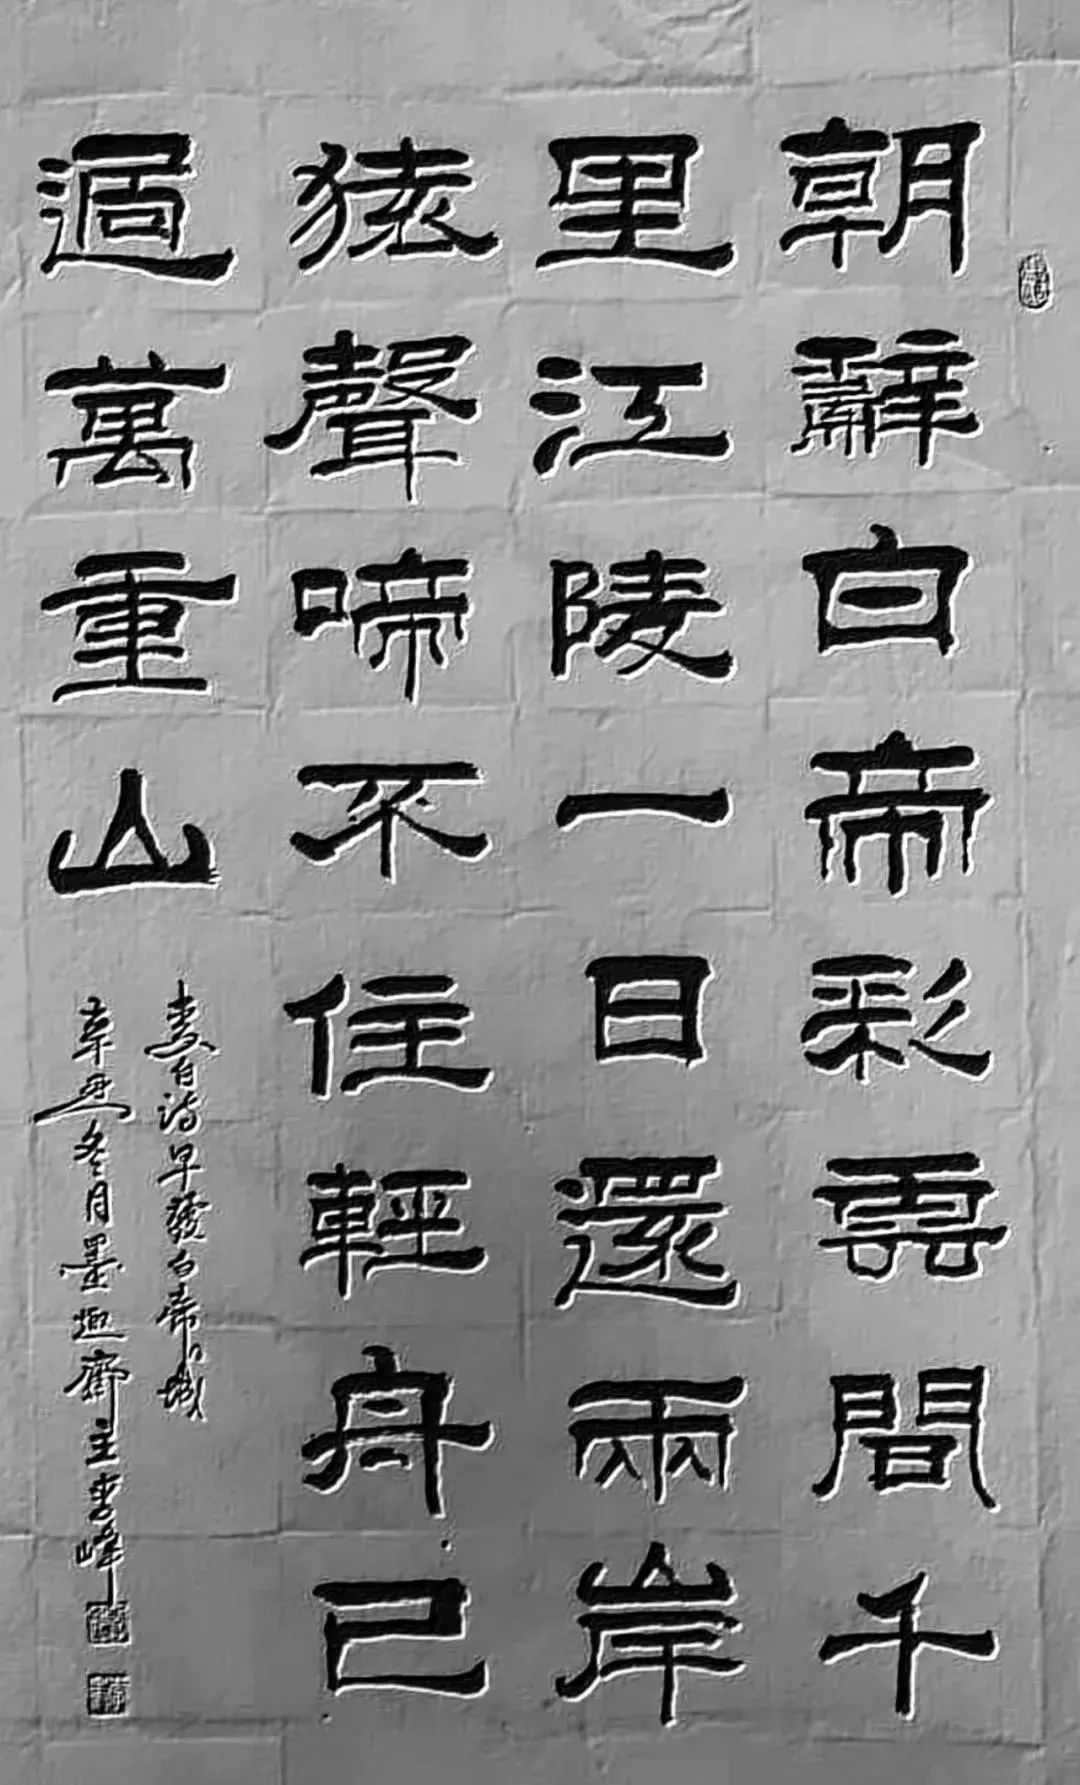 朝辭白帝彩雲間千
里江陵一日還兩岸
猿聲啼不住輕舟已
過萬重山
李白詩早發白帝城
辛丑冬月墨趣齋主李峰